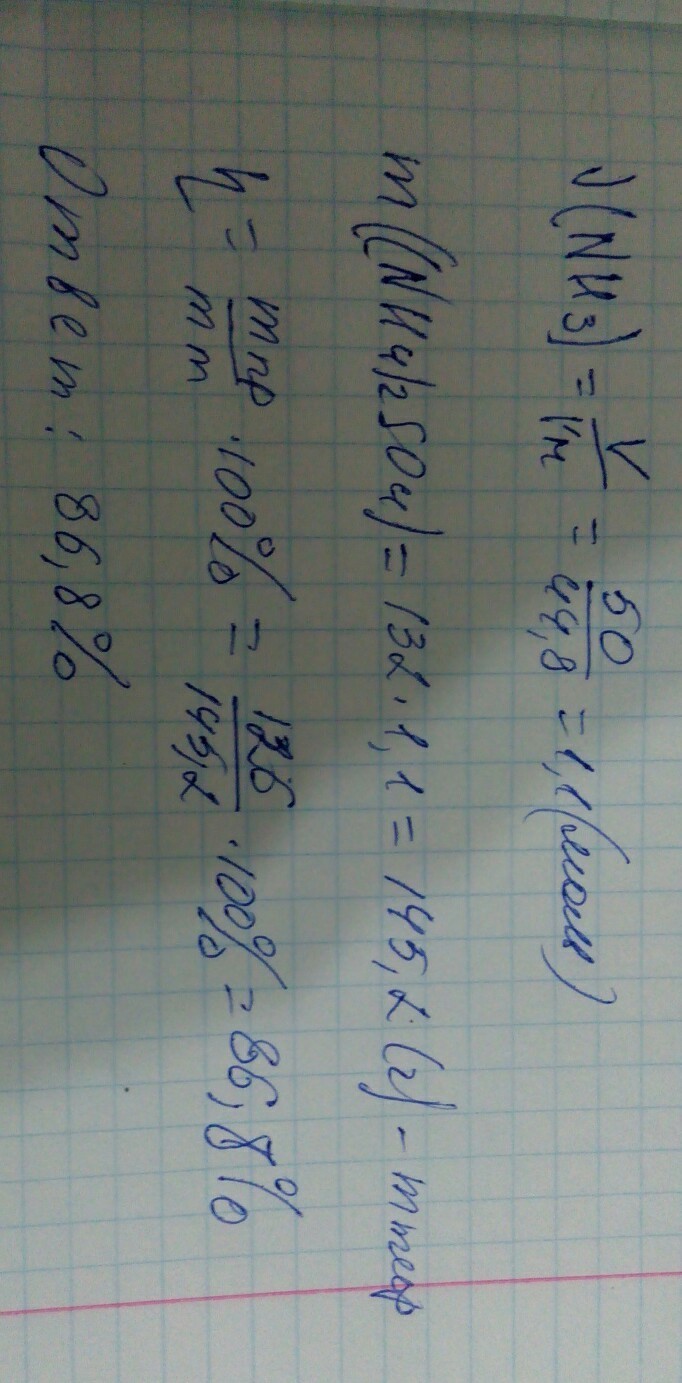 ν(NH3) = V/Vм = 50/44,8 = 1,1 (моль)
m((NH4)2SO4) = 132 · 1,1 = 145,2 (г) - mтеор
η = mпр/mт · 100% = 126/145,2 · 100% = 86,8%
Ответ: 86,8%